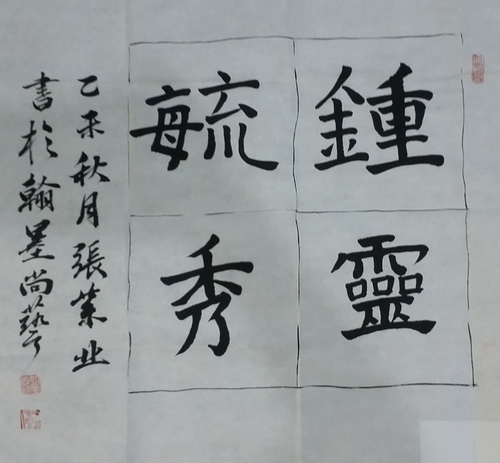 鍾靈
毓秀
乙未秋月張业
書於翰墨尚藝